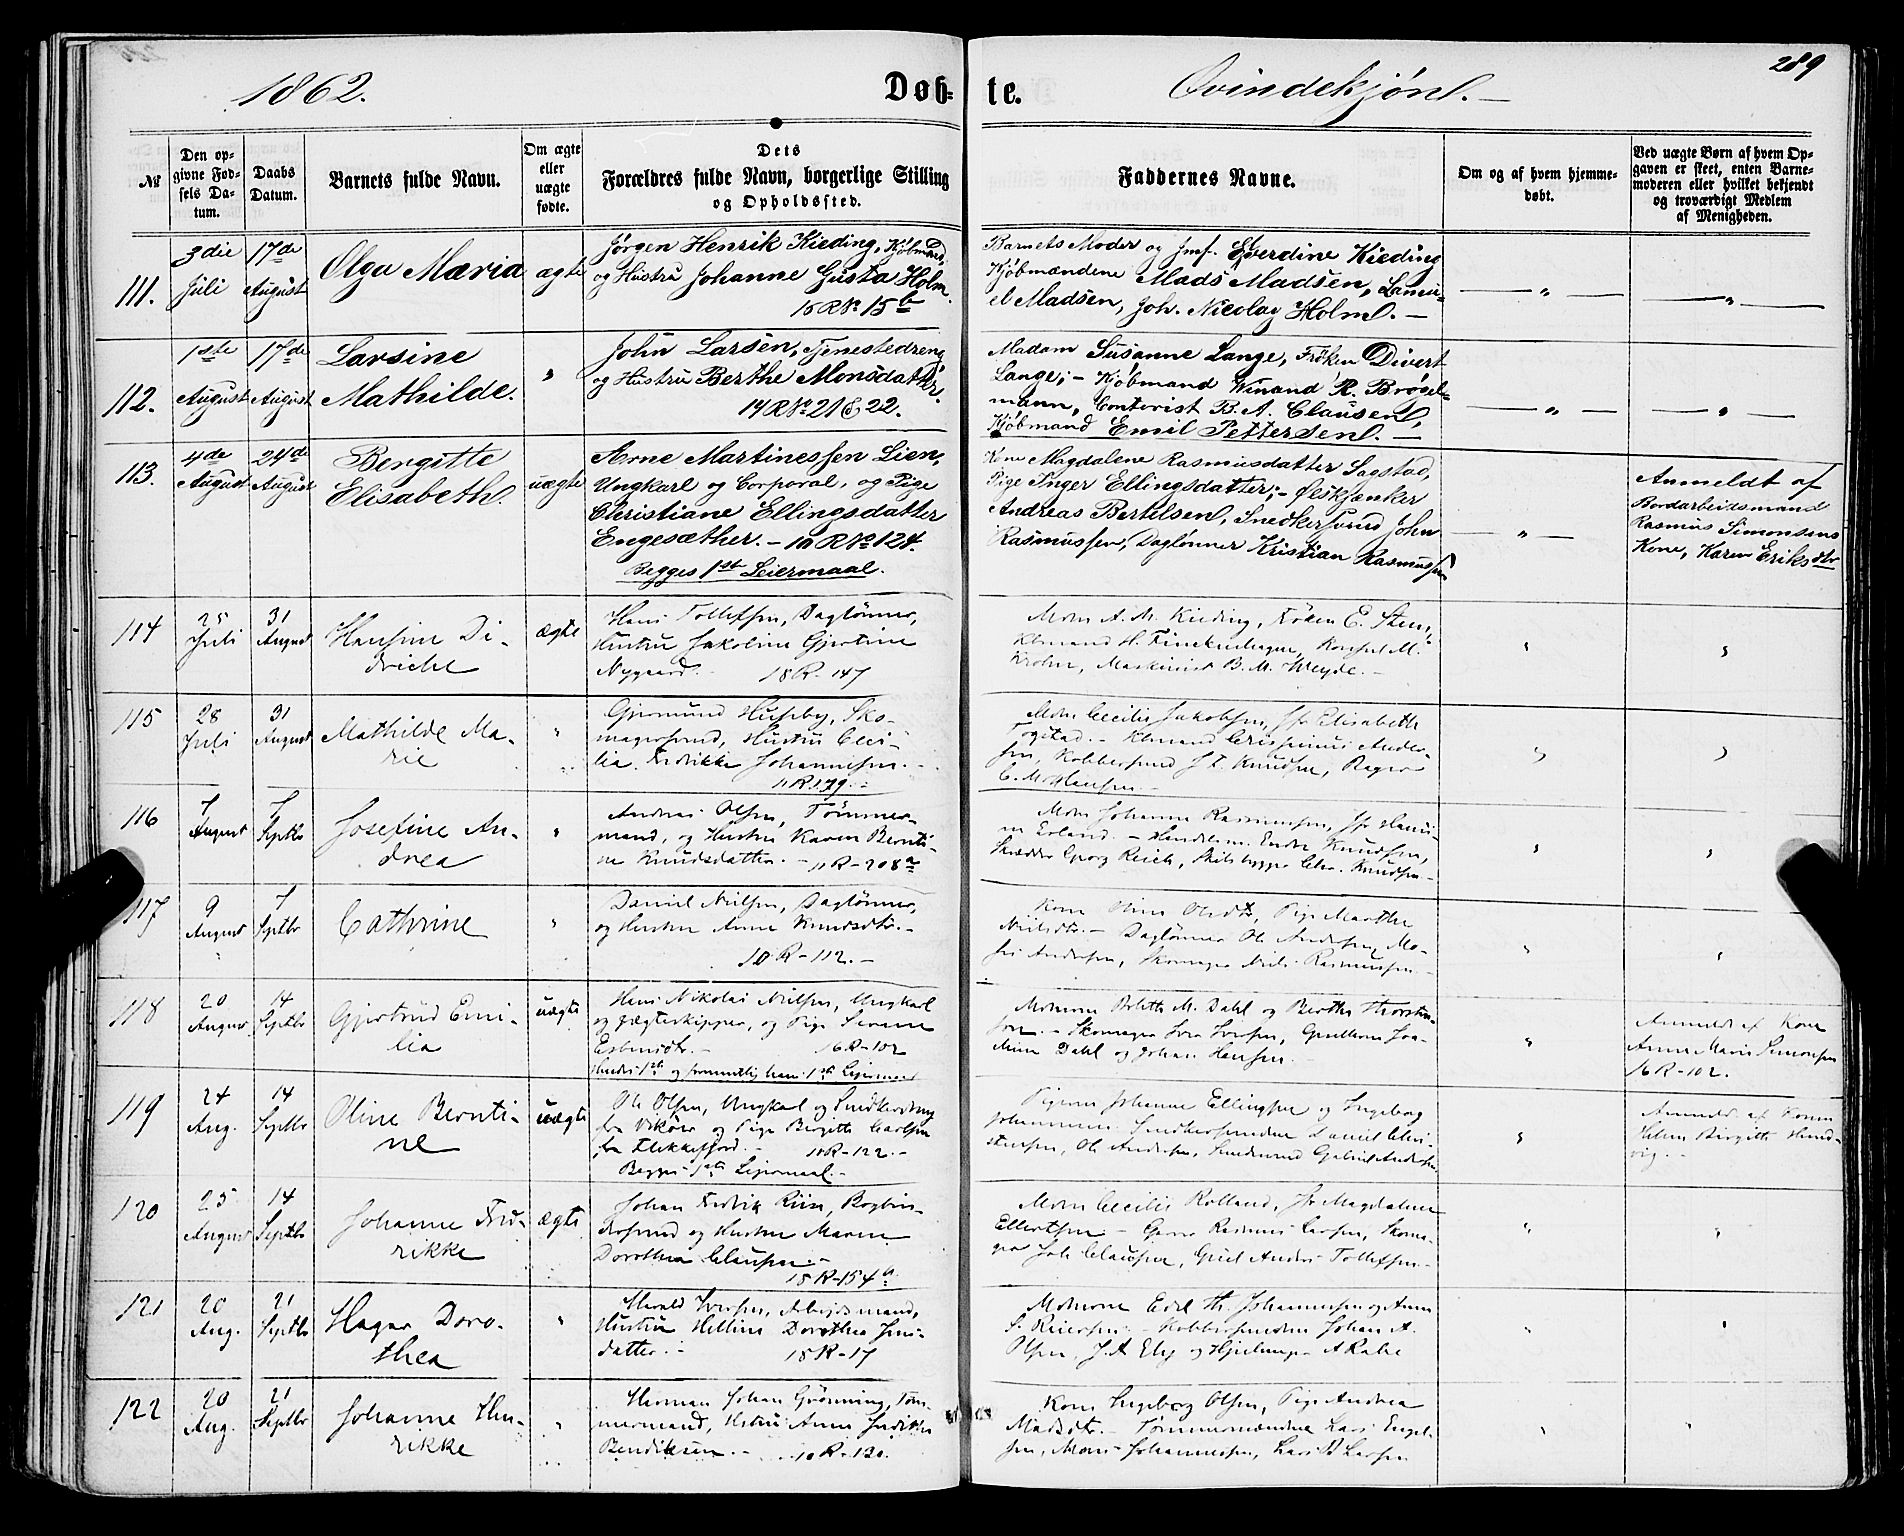 289
1862. Døb- te. Qvindekjøn.
№
Den op-
givne Fød-
sels Da-
tum.
Daabs
Datum.
Barnets fulde Navn.
Om ægte
eller
uægte
fødte.
Dets
Forældres fulde Navn, borgerlige Stilling
og Opholdssted.
Faddernes Navne.
Om og af hvem hjemme-
døbt.
Ved uægte Børn af hvem Op-
gaven er skeet, enten Barne-
moderen eller hvilket bekjendt
og troværdigt Medlem
af Menigheden.
111.
3die
Juli
17de
August
Olga Maria
ægte
Jørgen Henrik Kieding, Kjøbmand,
og Hustru Johanne Gusta Holm
15 R № 15 b
Barnets Moder og Jmf. Everdine Kieding
Kjøbmændene Mads Madsen, Samu-
el Madsen, Joh. Nicolay Holm. —
112.
1ste
August
17de
August
Larsine
Mathilde.
"
John Larsen, Tjenestedreng,
og Hustru Berthe Monsdatter.
14 R № 21 & 22.
Madam Susanne Lange, Frøken Divert
Lange; - Kjøbmand Winand R. Brøgel-
mann, Contorist B. A. Clausen,
Kjøbmand Emil Pettersen. —
113.
4de
August
24de
August
Bergitte
Elisabeth.
uægte
Arne Martinessen Lien,
Ungkarl og Corporal, og Pige
Christiane Ellingsdatter
Engesæther. - 10 R № 124.
Begges 1ste Leiermaal.
Kone Magdalene Rasmusdatter Sagstad,
Pige Inger Ellingsdatter; - Ølskjænker
Andreas Bertelsen, Snedkersvend John
Rasmussen, Daglønner Kristian Rasmussen
Anmeldt af
Bordarbeidsmand
Rasmus Simonsens
Kone, Karen Eriksdtr
114
25
Juli
31
August
Hansine Di-
driche
ægte
Hans Tollefsen, Daglønner,
Hustru Jakobine Gjertine
Nygaard. - 18 R - 147
Mdm A. M. Kieding, Frøken E. Sten,
Kbmand H. Finckenhagen, Konsul M.
Krohn, Maskinist B. M. Weyde. -
115
28
Juli
31
August
Mathilde Ma-
rie
"
Gjermund Huseby, Sko-
magersvend, Hustru Ceci-
lia Fredrikke Johannesen. -
11 R 179. -
Mdm Cecilie Jakobsen, Jfr Elisabeth
Kbmand Crispinus Ander-
sen, Kobbersmed J. T. Knudsen, Bager
116
7
August
7
Septbr
Josefine An-
drea
"
Andreas Olsen, Tømmer-
mand, og Hustru Karen Bernti-
ne Knudsdatter. - 11 R - 208 a
Mdm Johanne Rasmussen, Jfr Hansi-
ne Erland. - Handelsm. Endre Knudsen,
Skrædder Georg Reich, Skibsbygger Chr. Knudsen -
117
9
August
7
Septbr
Cathrine
"
Daniel Nielsen, Dagløner,
og Hustru Anne Knudsdtr. -
10 R - 112. -
Kone Oline Olsdtr, Pige Marthe
Nielsdtr. - Dagløner Ole Andersen, Mo-
ses Andersen, Skomager Niels Rasmussen -
118
20
August
14
Septbr
Gjertrud Emi-
lia
uægte
Hans Nikolai Nielsen, Ungkarl
og Jægteskipper, og Pige Serene
16 R - 102
Hendes 1ste og formentlig hans 1ste Lejermaal
Mdmme Bolette M. Dahl og Berthe Thorsten-
sen. - Skomager Iver Iversen, Guldsm Joa-
chim Dahl og Johan Hansen.
Anmeldt af Kone
Anne Marie Simonsen
16 R - 102.
119
24
Aug.
14
Septbr
Oline Bernti-
ne
uægte
Ole Olsen, Ungkarl og Snedkerdreng
fra Vikør og Pige Birgitte Carlsen
fra Flekkefjord. - 10 R - 122. -
Begges 1ste Lejermaal. -
Pigerne Johanne Ellingsen og Ingeborg
Johannesen. Snedkersvendene Daniel Chri-
stensen, Ole Andersen, Snedkersvend Gabriel Andersen
Anmeldt af Konen
Helene Birgitte Hund-
vig. -
120
25
August
14
Septbr
Johanne Fred-
rikke
ægte
Johan Fredrik Riise, Bogbin-
dersvend og Hustru Maren
Dorothea Clausen. -
18 R - 154 b
Mdm Cecilie Rolland, Jfr Magdalena
Ellertsen. - Garver Rasmus Larsen, Skoma-
ger Joh. Clausen, Guldsm Anders Tollefsen. -
121
20
Aug.
21
Septbr
Hagar Doro-
thea
"
Harald Iversen, Arbeidsmand,
Hustru Helline Dorothea Jens-
datter. - 18 R - 17
Mdmme Edel Th. Johannesen og Anne
S. Reiersen. - Kobbersmedene Johan A.
Olsen, J. A. Eby og Hjulmager A Rabe
122
20
Aug.
21
Septbr
Johanne Hen-
rikke
"
Herman Johan Grønning, Tøm-
mermand, Hustru Anne Fredrikke
Bendiksen. - 10 R - 130.
Kone Ingeborg Olsen, Pige Andrea
Madsdtr. - Tømmermændene Lars Engel-
sen, Mons Johannessen, Lars B Larsen